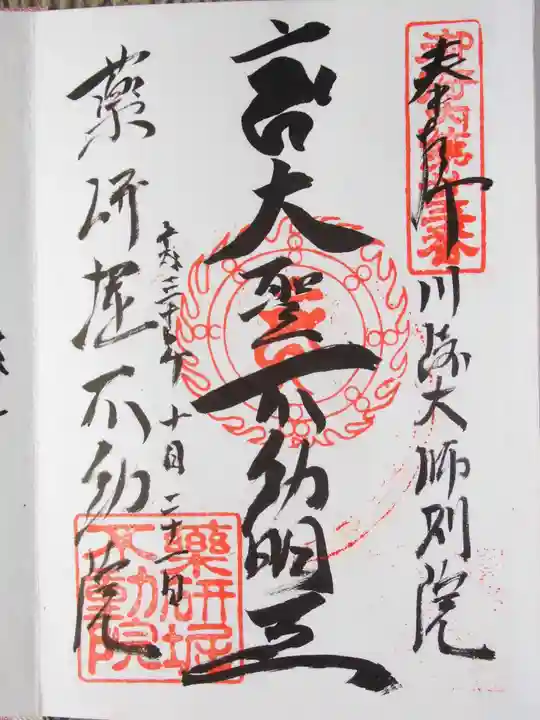 奉拝
川崎大師別院
大聖不動明王
平成三十年十月二十一日
薬研堀不動院
薬研堀
不動院